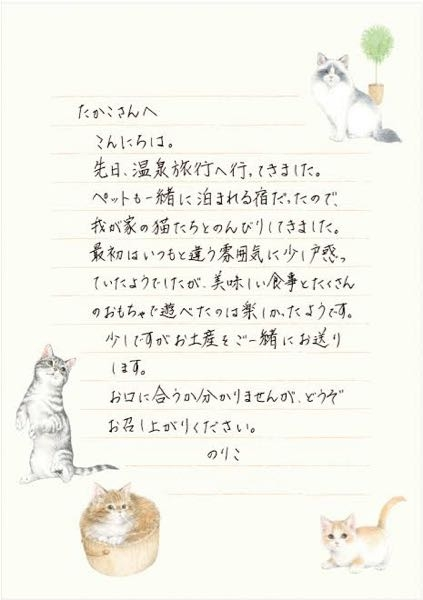 たかこさんへ
こんにちは。
先日、温泉旅行へ行ってきました。
ペットも一緒に泊まれる宿だったので、
我が家の猫たちとのんびりしてきました。
最初はいつもと違う雰囲気に少し戸惑っ
ていたようでしたが、美味しい食事とたくさん
のおもちゃで遊べたのは楽しかったようです。
少しですがお土産をご一緒にお送り
します。
お口に合うか分かりませんが、どうぞ
お召し上がりください。
のりこ